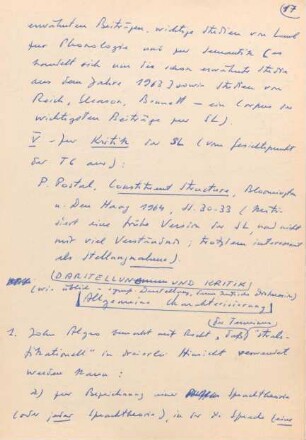 17
erwähnten Beiträgen, wichtige Studien von Lamb
zur Phonologie und zur Semantik (es
handelt sich um die schon erwähnte Studie
aus dem Jahre 1963) sowie Studien von
Reich, Gleason, Bennett – ein Corpus der
wichtigsten Beiträge zur SG.)
V - Zur Kritik der SG (vom Gesichtspunkt
der TG aus):
P. Postal, Constituent Structure, Bloomington
u. Den Haag 1964, S. 30-33 (kritisiert
eine frühe Version der SG, und nicht
mit viel Verständnis; trotzdem interessant
als Stellungnahme).
(DARSTELLUNG UND KRITIK)
(wie üblich
Allgemeine Charakterisierung
1. John Algeo bemerkt mit Recht, daß
in dreierlei Hinsicht verwendet
werden kann:
a) zur Bezeichnung einer Sprachtheorie
(oder jeder Sprachtheorie), in der die Sprache (eine